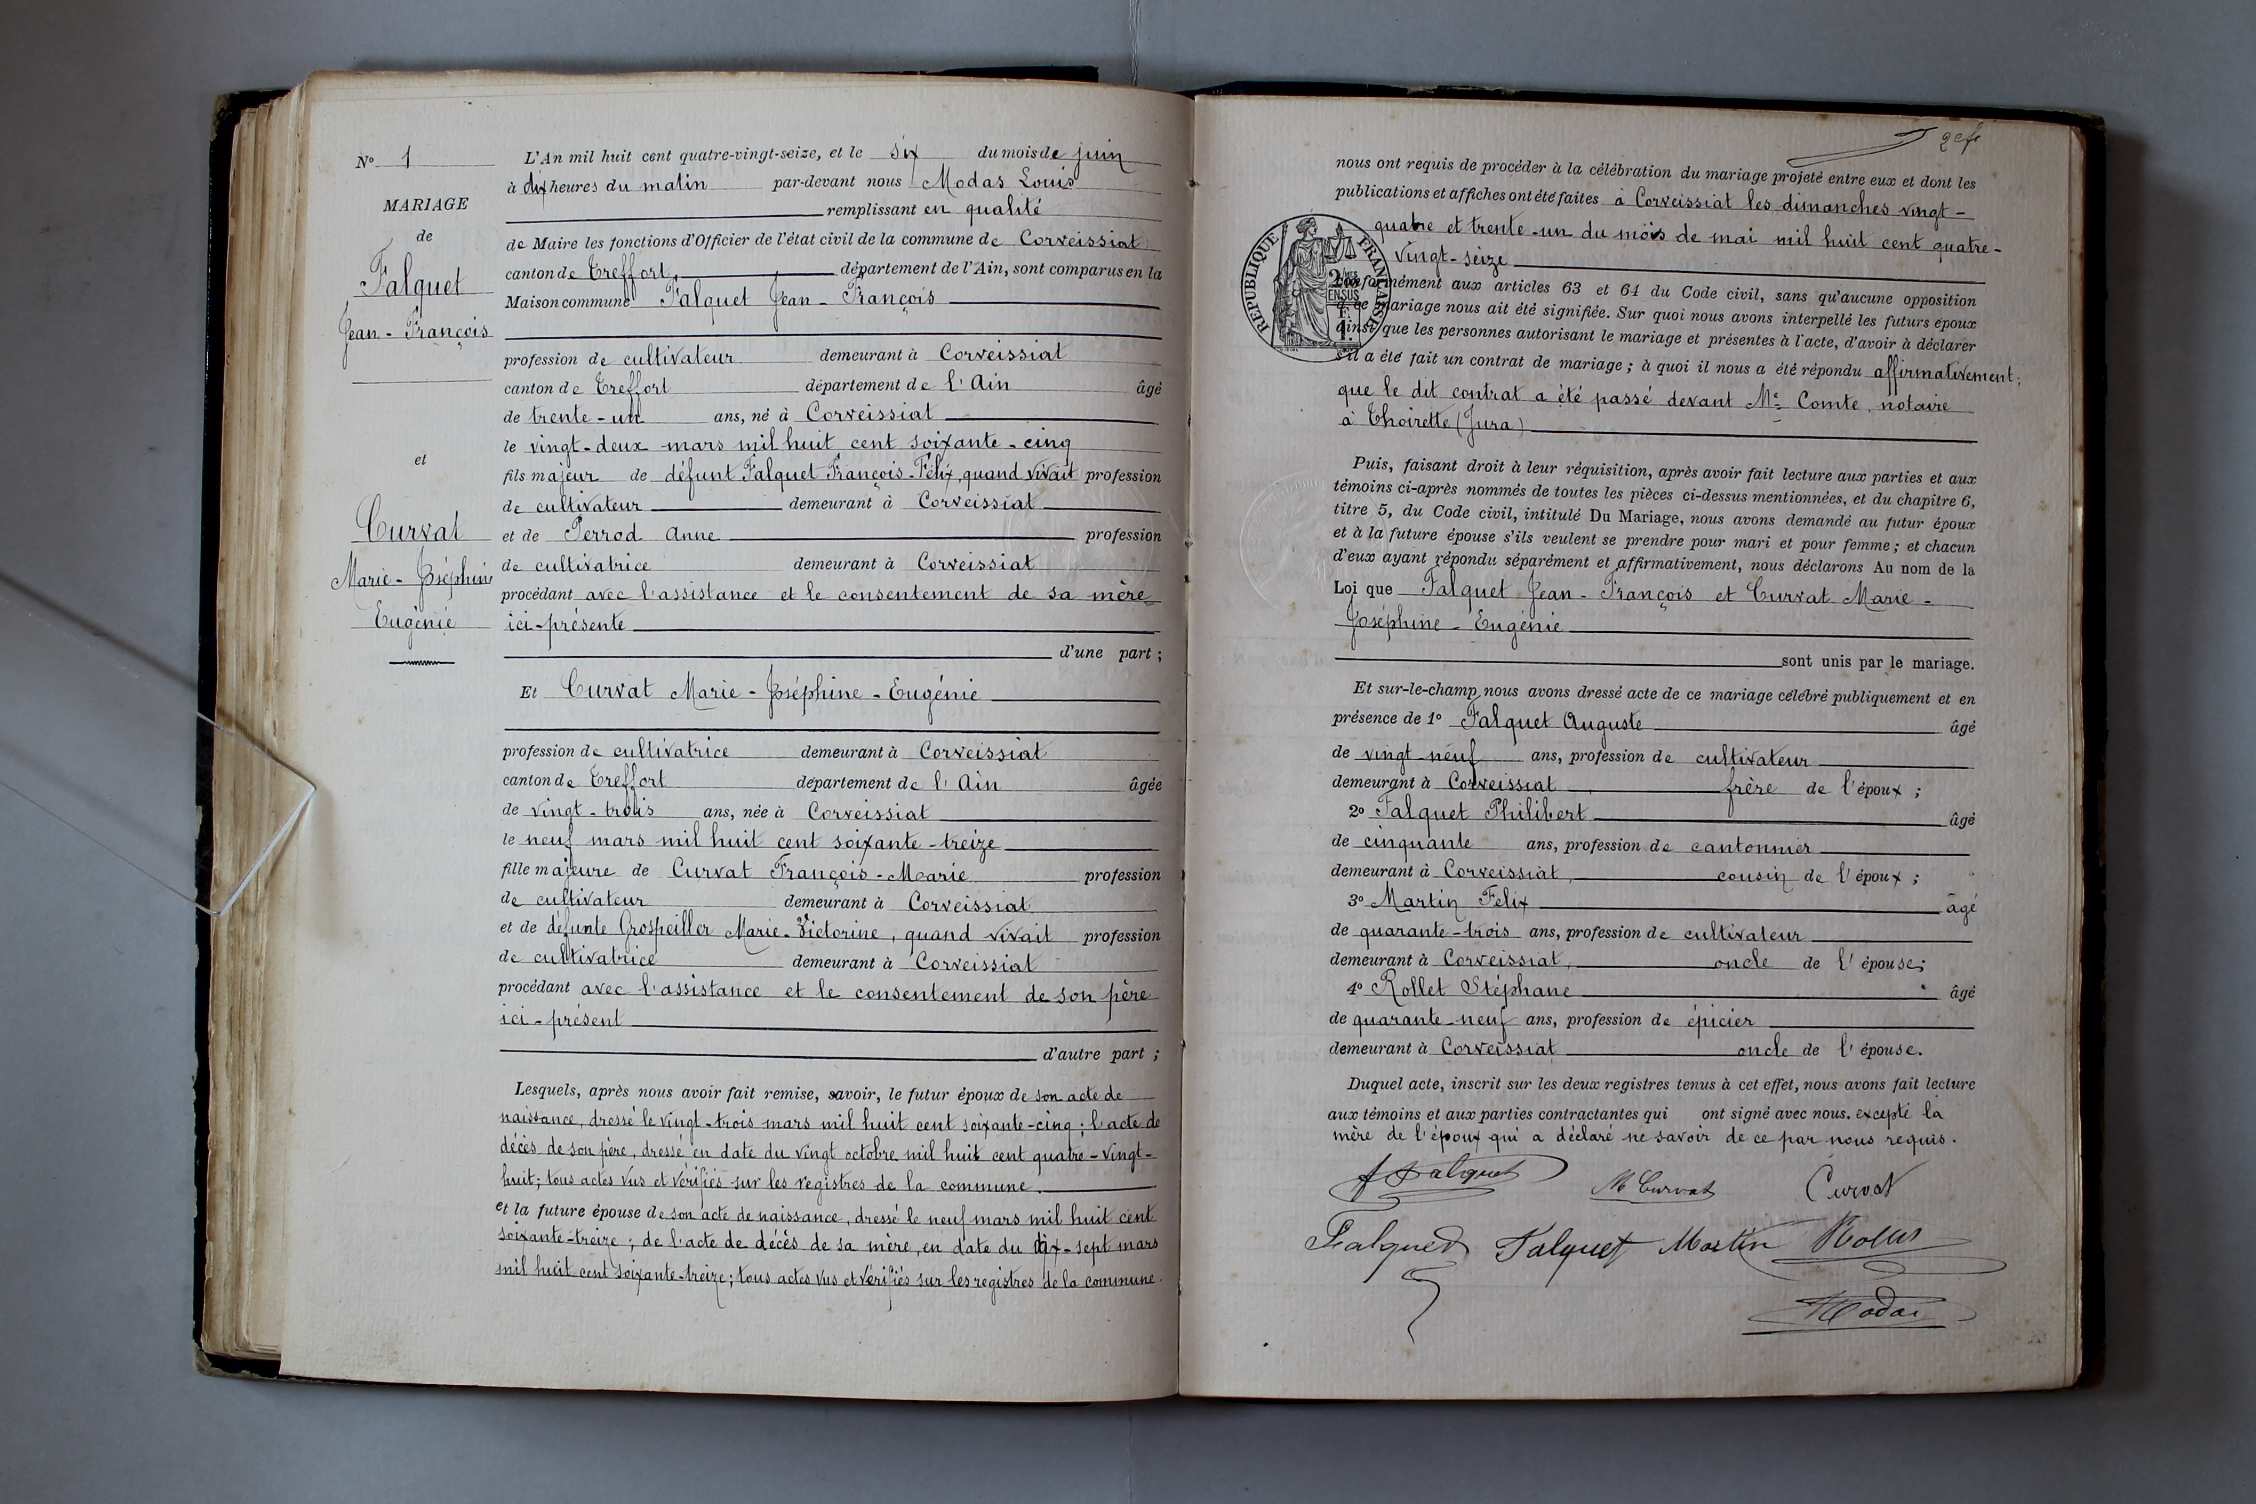 N° 1
MARIAGE
de
Falquet
Jean - François
et
Curvat
Marie - Joséphine
Eugénie
L'An mil huit cent quatre-vingt-seize, et le six du mois de juin
à dix heures du matin par-devant nous Modas Louis
remplissant en qualité
de Maire les fonctions d'Officier de l'état civil de la commune de Corveissiat
canton de Treffort, département de l'Ain, sont comparus en la
Maison commune Falquet Jean - François
profession de cultivateur demeurant à Corveissiat
canton de Treffort département de l'Ain âgé
de trente - un ans, né à Corveissiat
le vingt - deux mars mil huit cent soixante - cinq
fils majeur de défunt Falquet François - Félix, quand vivait profession
de cultivateur demeurant à Corveissiat
et de Perrod Anne profession
de cultivatrice demeurant à Corveissiat
procédant avec l'assistance et le consentement de sa mère
ici - présente
d'une part ;
Et Curvat Marie - Joséphine - Eugénie
profession de cultivatrice demeurant à Corveissiat
canton de Treffort département de l'Ain âgée
de vingt - trois ans, née à Corveissiat
le neuf mars mil huit cent soixante - treize
fille majeure de Curvat François - Marie profession
de cultivateur demeurant à Corveissiat
et de défunte Grospeiller Marie - Victorine, quand vivait profession
de cultivatrice demeurant à Corveissiat
procédant avec l'assistance et le consentement de son père
ici - présent
d'autre part ;
Lesquels, après nous avoir fait remise, savoir, le futur époux de son acte de
naissance, dressé le vingt - trois mars mil huit cent soixante - cinq ; l'acte de
décès de son père, dressé en date du vingt octobre mil huit cent quatre - vingt -
huit ; tous actes vus et vérifiés sur les registres de la commune.
et la future épouse de son acte de naissance, dressé le neuf mars mil huit cent
soixante - treize ; de l'acte de décès de sa mère, en date du dix - sept mars
mil huit cent soixante - treize ; tous actes vus et vérifiés sur les registres de la commune.
nous ont requis de procéder à la célébration du mariage projeté entre eux et dont les
publications et affiches ont été faites à Corveissiat les dimanches vingt -
quatre et trente - un du mois de mai mil huit cent quatre -
vingt - seize
RÉPUBLIQUE FRANÇAISE
conformément aux articles 63 et 64 du Code civil, sans qu'aucune opposition
à ce mariage nous ait été signifiée. Sur quoi nous avons interpellé les futurs époux
ainsi que les personnes autorisant le mariage et présentes à l'acte, d'avoir à déclarer
s'il a été fait un contrat de mariage ; à quoi il nous a été répondu affirmativement ;
que le dit contrat a été passé devant Me Comte, notaire
à Thoirette (Jura)
Puis, faisant droit à leur réquisition, après avoir fait lecture aux parties et aux
témoins ci-après nommés de toutes les pièces ci-dessus mentionnées, et du chapitre 6,
titre 5, du Code civil, intitulé Du Mariage, nous avons demandé au futur époux
et à la future épouse s'ils veulent se prendre pour mari et pour femme ; et chacun
d'eux ayant répondu séparément et affirmativement, nous déclarons Au nom de la
Loi que Falquet Jean - François et Curvat Marie -
Joséphine - Eugénie
sont unis par le mariage.
Et sur-le-champ nous avons dressé acte de ce mariage célébré publiquement et en
présence de 1° Falquet Auguste âgé
de vingt - neuf ans, profession de cultivateur
demeurant à Corveissiat, frère de l'époux ;
2° Falquet Philibert âgé
de cinquante ans, profession de cantonnier
demeurant à Corveissiat, cousin de l'époux ;
3° Martin Félix âgé
de quarante - trois ans, profession de cultivateur
demeurant à Corveissiat, oncle de l'épouse ;
4° Rollet Stéphane âgé
de quarante - neuf ans, profession de épicier
demeurant à Corveissiat oncle de l'épouse.
Duquel acte, inscrit sur les deux registres tenus à cet effet, nous avons fait lecture
aux témoins et aux parties contractantes qui ont signé avec nous. excepté la
mère de l'époux qui a déclaré ne savoir de ce par nous requis.
Falquet M Curvat Curvat
Falquet Falquet Martin Rollet
Modas